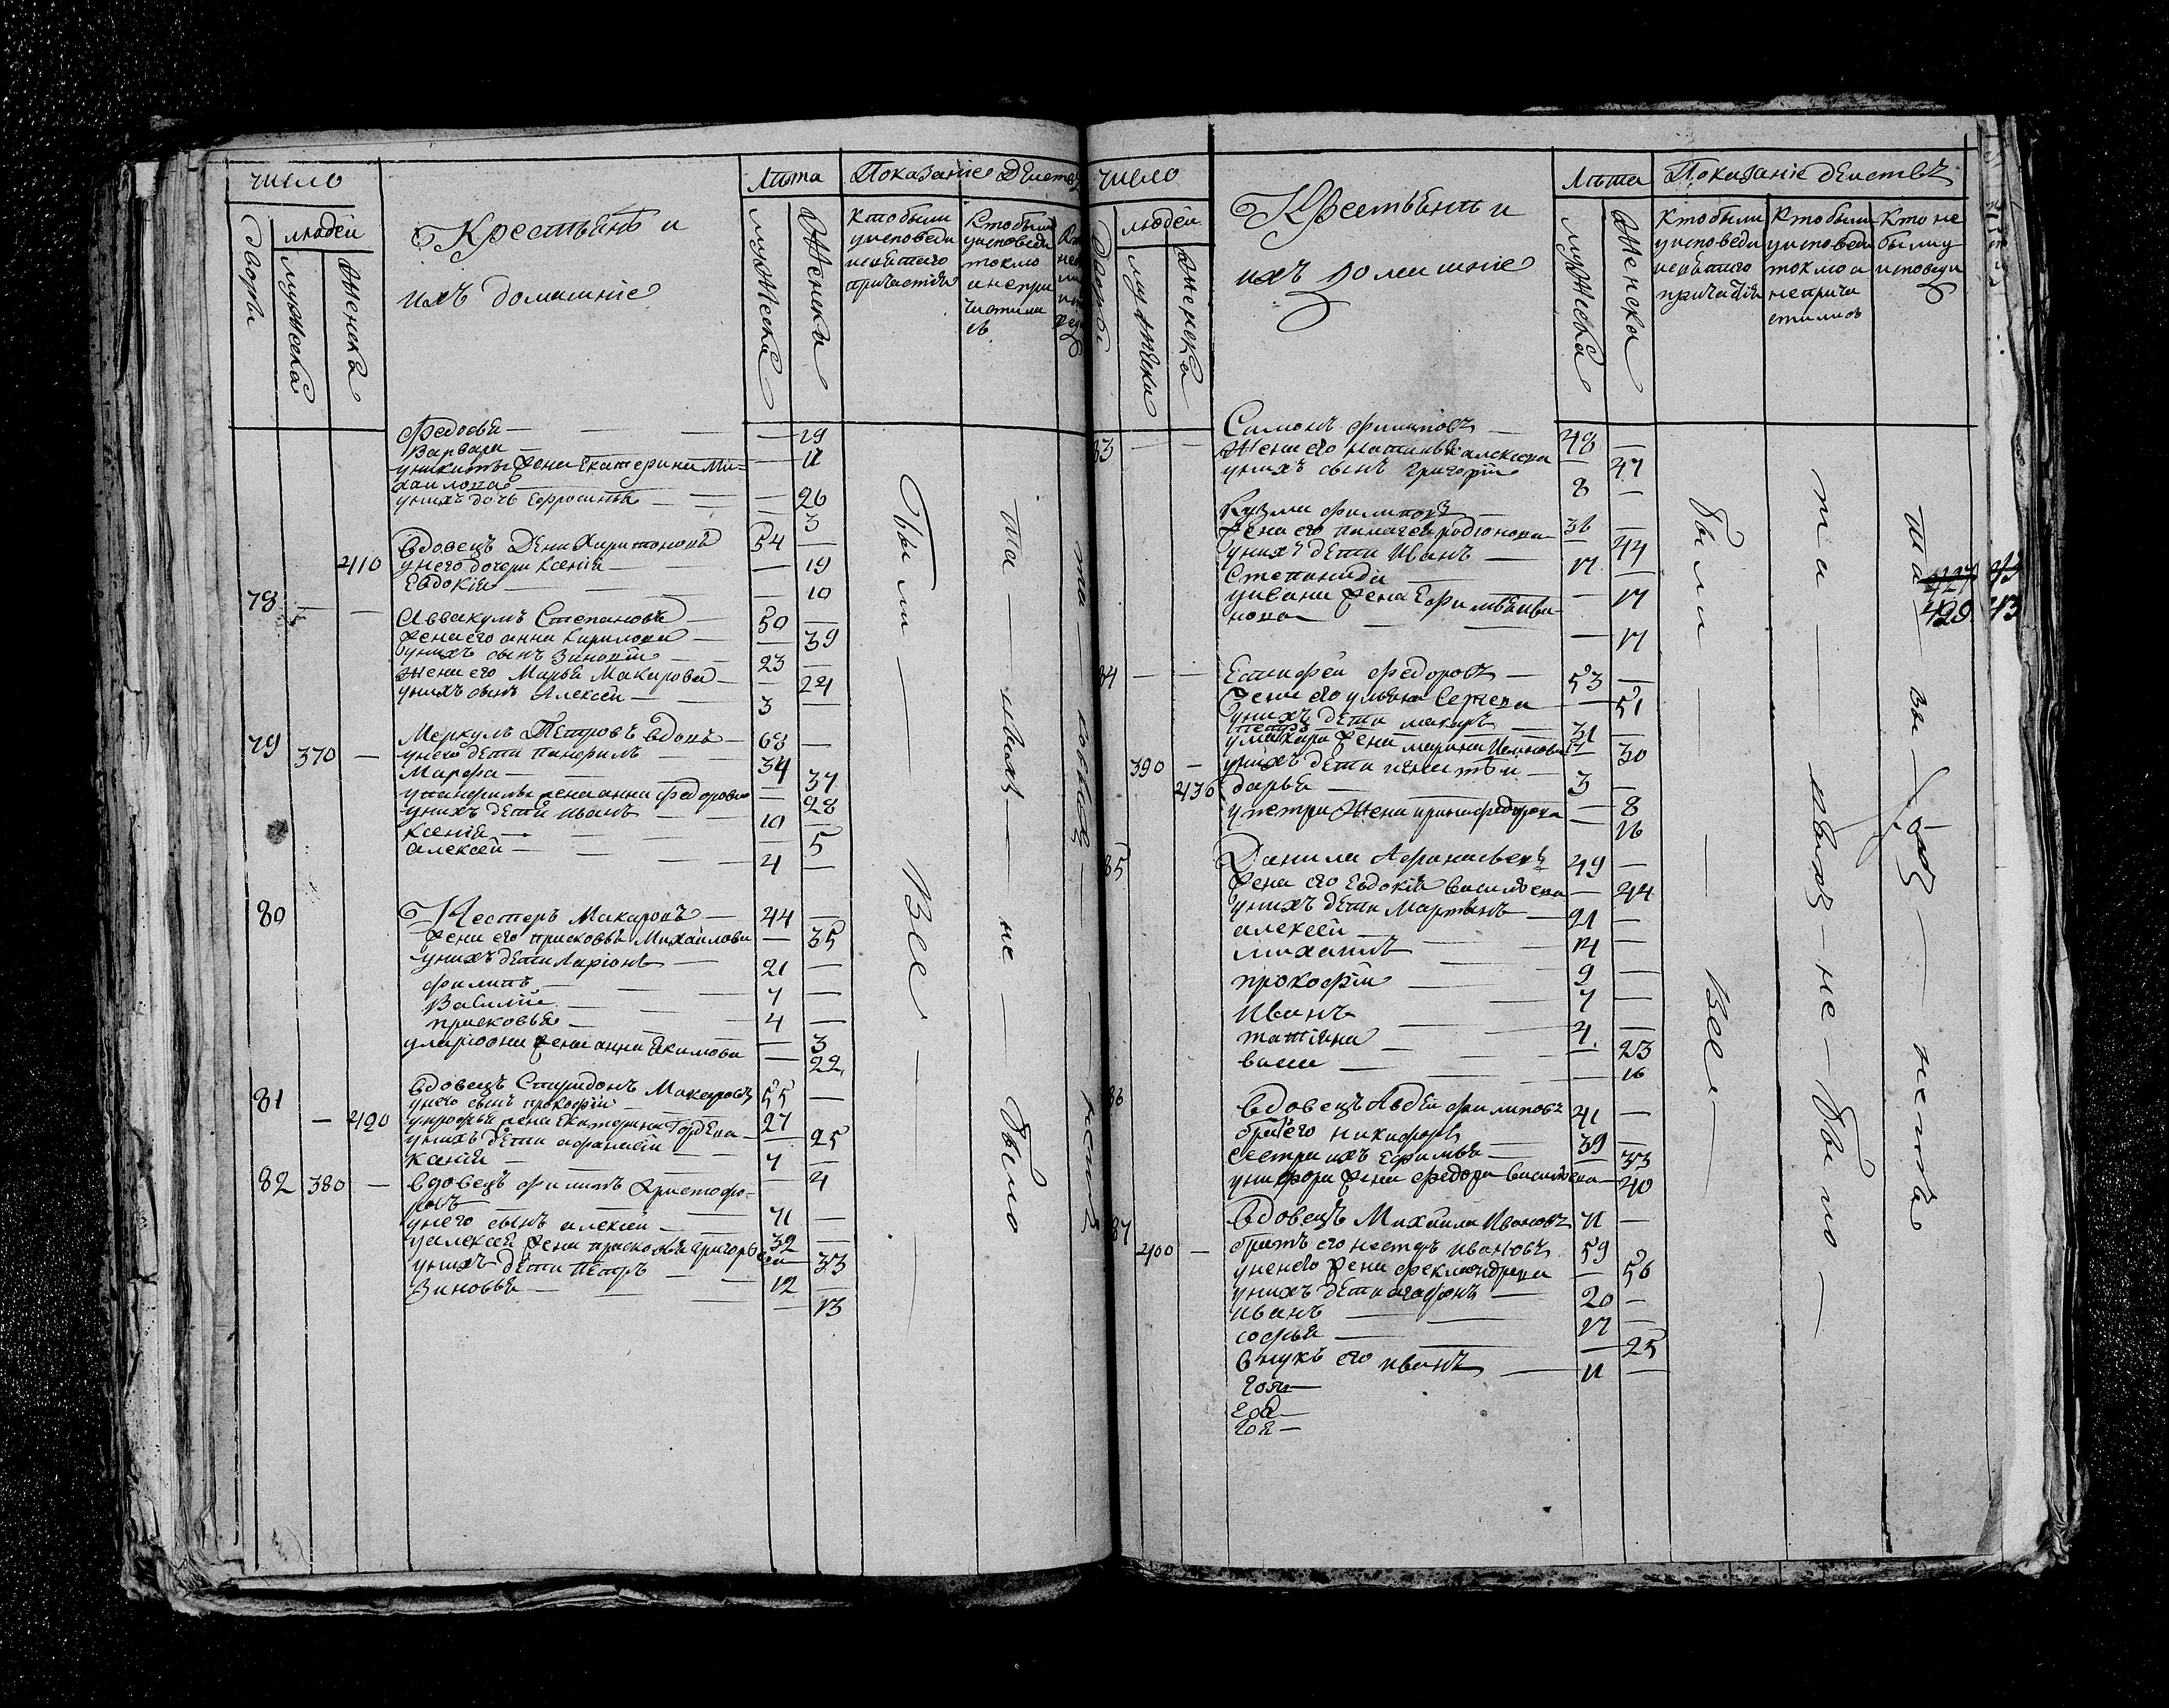 число
дворы
людей
мужеска
женска
Крестьянѣ и
ихъ домашніе
лѣта
мужеска
женска
Показаніе дѣйствъ
Кто были
у исповеди
и святаго
причастія
Кто были
у исповеди
токмо
а не при
частили
съ
Федосья — — 19
Варвара — — 11
у никиты жена Екатерина Ми-
хаилова — 26
у нихъ дочь Ефросинья — — 3
вдовецъ Харитоновъ 54 —
410 у него дочери Ксенія — — 19
Евдокія — — 10
78 — — Аввакумъ Степановъ 50 —
жена его анна кирилова — 39
у нихъ сынъ Зиновій — 23 —
жена его Марья Макарова — 24
у нихъ сынъ Алексей — 3 —
79 370 — Меркулъ Петровъ вдовъ — 68 —
у него дети панфилъ — 34
Марфа — — 37
у панфила жена анна федорова — 28
у нихъ дети иванъ — 10 —
ксенія — — 5
алексей — 4 —
80 Нестеръ Макаровъ — 44 —
жена его прасковья Михайлова — 35
у нихъ дети Ларіонъ — 21 —
филипъ — 7 —
Василій — 4 —
прасковья — — 3
у ларіона жена анна Екимова — 22
81 вдовецъ Спиридонъ Макаровъ 55 —
у него сынъ прокофій — 27
— 420 у прокофья жена Екатерина — 25
у нихъ дети афанасей — 7
ксенія — — 4
82 380 — вдовецъ филипъ Христофо-
ровъ 71 —
у него сынъ алексей — 32 —
у алексея жена прасковья григорьева 33
у нихъ дети Петръ — 12 —
Зиновья — — 13
были — Все —
та — ковыхъ — не — было
та — ковыхъ — нетъ
число
дворы
людей
мужеска
женска
Крестьянѣ и
ихъ домашніе
лѣта
мужеска
женска
Показаніе дѣйствъ
Кто были
у исповеди
и святаго
причастія
Кто были
у исповеди
токмо а
не прича
стились
Кто не
были у
исповеди
83 — — Симонъ филиповъ — 48 —
жена его наталья алексеева — 47
у нихъ сынъ григорій 8 —
Кузма филиповъ — 36 —
жена его родіонова 44
у нихъ дети Иванъ — 17 —
Степанида — — 17
у ивана жена Ефимья
нова — — 17
84 — — федоровъ — 53 —
жена его ульяна Сергеева — 51
у нихъ дети макаръ — 31
петръ — 17
у макара жена марина Иванова 30
390 — у нихъ дети — 3 —
430 дарья — — 8
у петра жена ирина федорова — 16
85 Данила Афанасьевъ 49 —
жена его Евдокія васильева — 44
у нихъ дети Мартынъ — 21 —
алексей — 14 —
михаилъ 9 —
прокофій — 7 —
Иванъ — 4 —
татіяна — — 23
васса — — 16
86 вдовецъ Авдей филиповъ 41 —
братъ его никифоръ — 39 —
сестра ихъ Ефимья — 33
жена федора васильева — 40
87 вдовецъ Михаила Ивановъ 71 —
400 — братъ его нестеръ ивановъ 59
жена фекла — 56
у нихъ дети агафонъ — 20 —
иванъ — 17 —
софья — — 25
внукъ его иванъ — 11 —
были — Все —
та — ковыхъ — не — было —
та — ковыхъ — нетъ
429